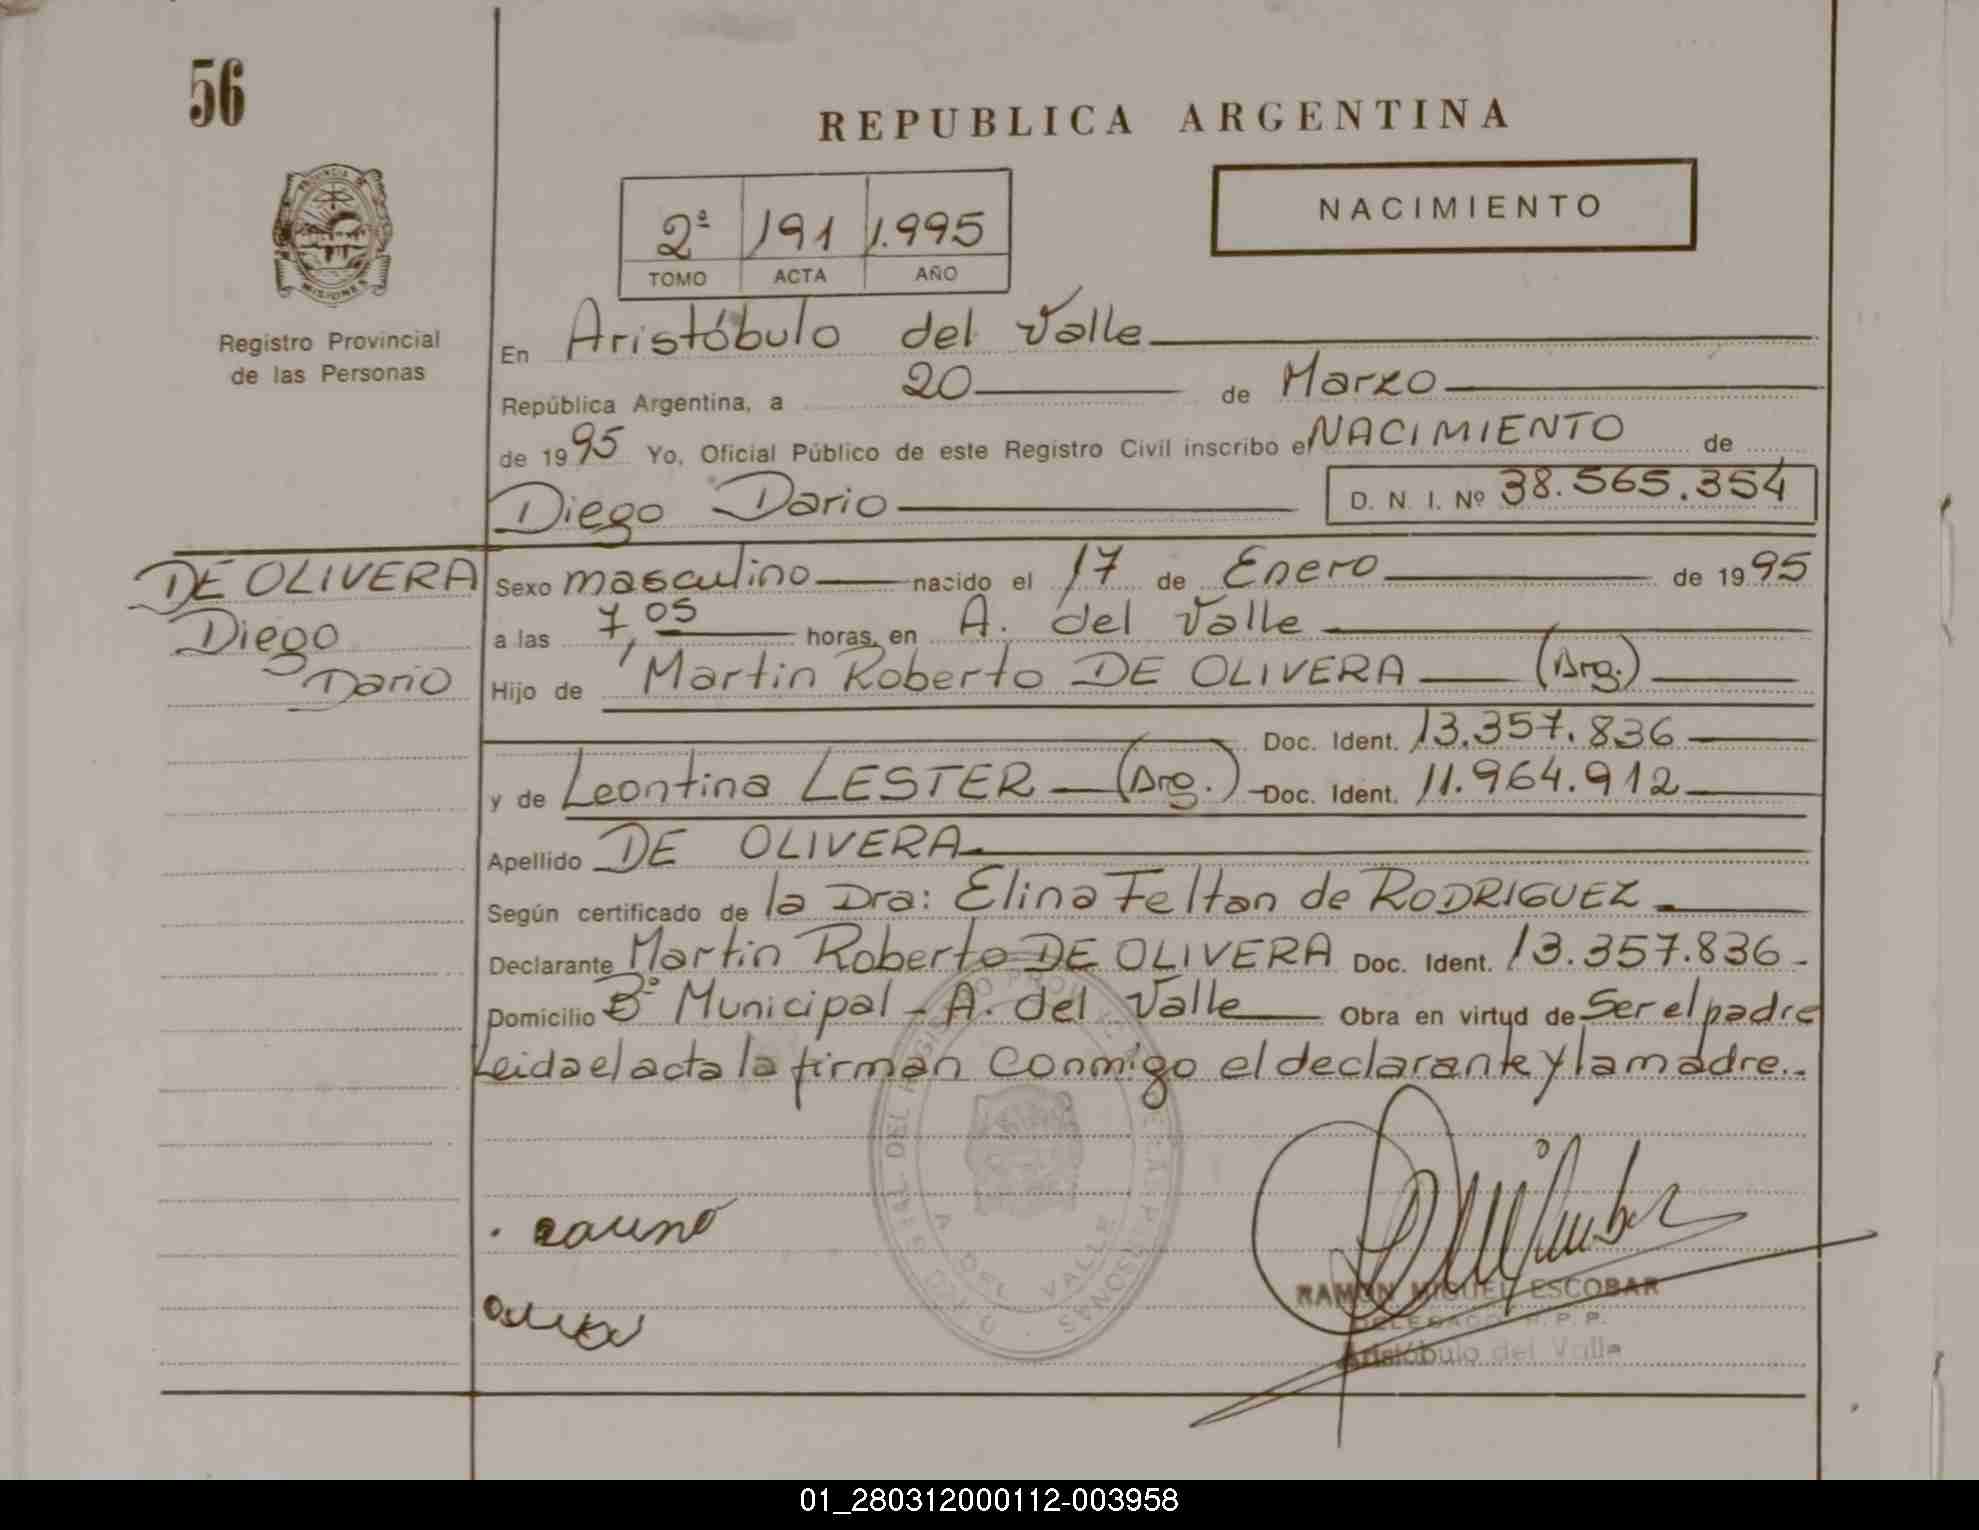 56
REPUBLICA ARGENTINA
NACIMIENTO
2ª 191 1.995
TOMO ACTA AÑO
PROVINCIA DE MISIONES
Registro Provincial
de las Personas
En Aristóbulo del Valle
República Argentina, a 20 de Marzo
de 1995 Yo, Oficial Público de este Registro Civil inscribo el NACIMIENTO de
Diego Dario D. N. I. Nº 38.565.354
DE OLIVERA
Diego
Dario
Sexo masculino nacido el 17 de Enero de 1995
a las 7,05 horas, en A. del Valle
Hijo de Martin Roberto DE OLIVERA (Arg.)
Doc. Ident. 13.357.836
y de Leontina LESTER (Arg.) Doc. Ident. 11.964.912
Apellido DE OLIVERA
Según certificado de la Dra: Elina Feltan de RODRIGUEZ
Declarante Martin Roberto DE OLIVERA Doc. Ident. 13.357.836
Domicilio Bº Municipal - A. del Valle Obra en virtud de Ser el padre
Leida el acta la firman conmigo el declarante y la madre.
A. DEL VALLE
RAMON MIGUEL ESCOBAR
DELEGADO R. P. P.
Aristóbulo del Valle
01_280312000112-003958